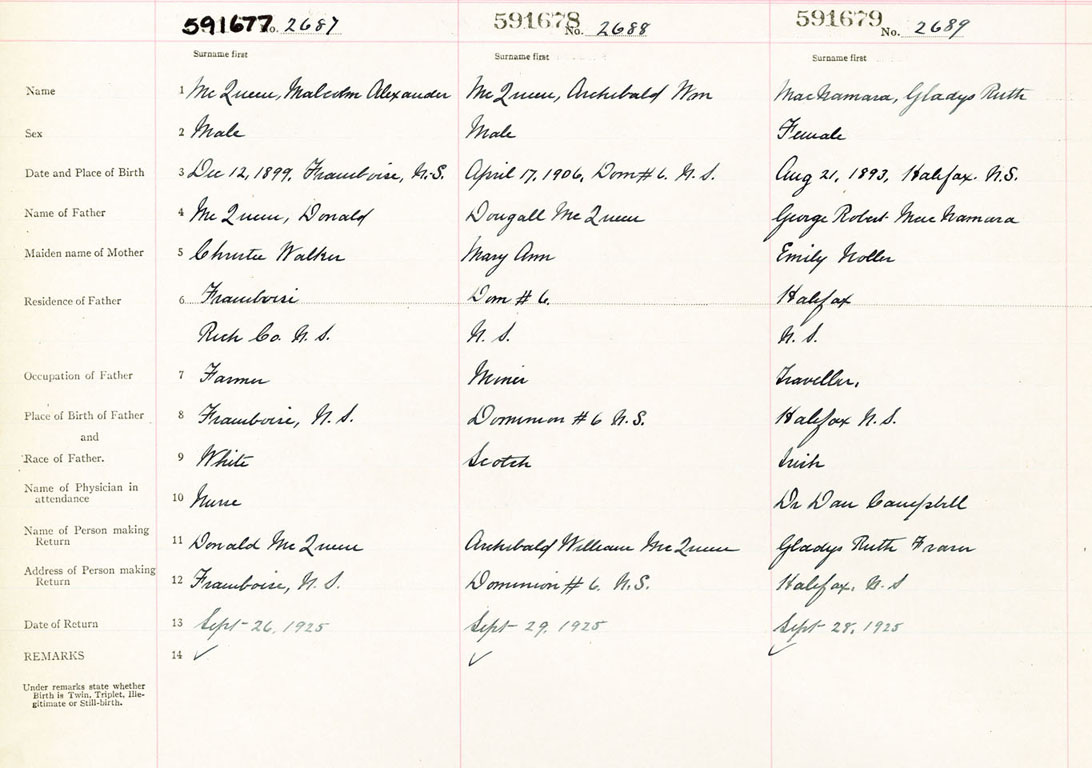 591677 No. 2687 591678 No. 2688 591679 No. 2689
Surname first Surname first Surname first
Name 1 McQueen, Malcolm Alexander McQueen, Archibald Wm MacNamara, Gladys Ruth
Sex 2 Male Male Female
Date and Place of Birth 3 Dec 12, 1899, Framboise, N.S. April 17, 1906, Dom #6. N.S. Aug 21, 1893, Halifax. N.S.
Name of Father 4 McQueen, Donald Dougall McQueen George Robert MacNamara
Maiden name of Mother 5 Christie Walker Mary Ann Emily
Residence of Father 6 Framboise Dom #6. Halifax
Rich Co. N.S. N.S. N.S.
Occupation of Father 7 Farmer Miner Traveller,
Place of Birth of Father 8 Framboise, N.S. Dominion #6 N.S. Halifax N.S.
and
Race of Father. 9 White Scotch Irish
Name of Physician in
attendance 10 Nurse Dr Dan Campbell
Name of Person making
Return 11 Donald McQueen Archibald William McQueen Gladys Ruth Fraser
Address of Person making
Return 12 Framboise, N.S. Dominion #6. N.S. Halifax, N.S
Date of Return 13 Sept 26, 1925 Sept 29, 1925 Sept 28, 1925
REMARKS 14 ✓ ✓ ✓
Under remarks state whether
Birth is Twin, Triplet, Ille-
gitimate or Still-birth.